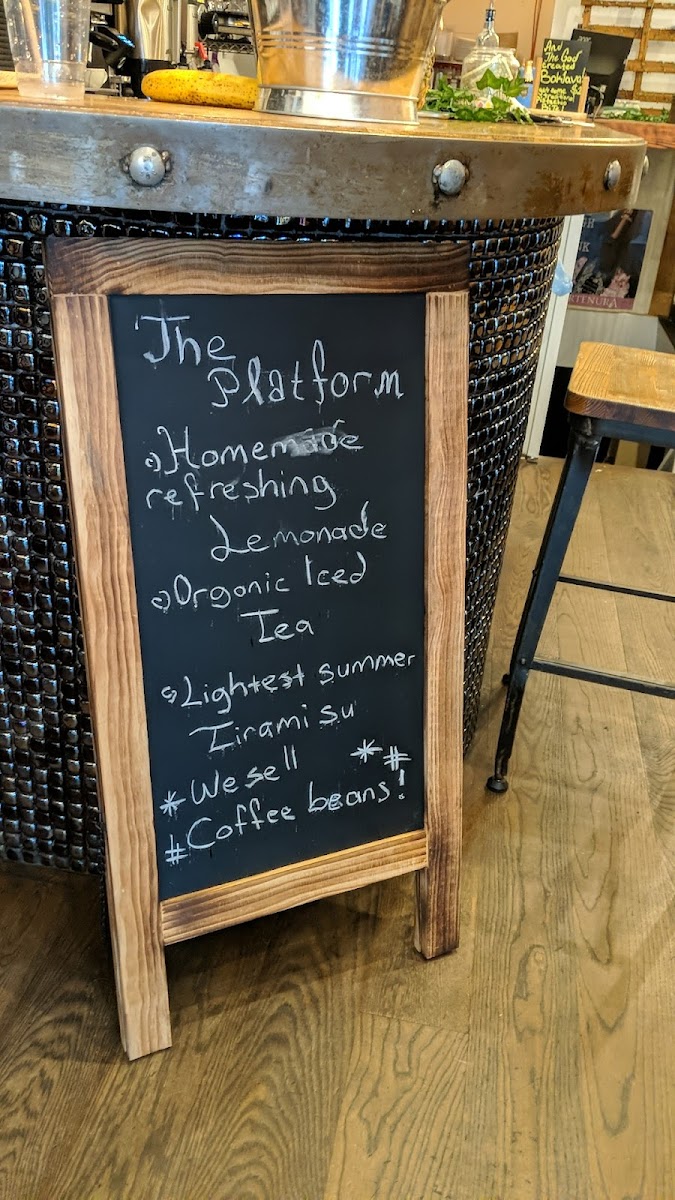 And
The God
created
Baklava
The
Platform
Homemade
refreshing
Lemonade
Organic Iced
Tea
Lightest summer
Tirami su
* We sell *#
# Coffee beans!